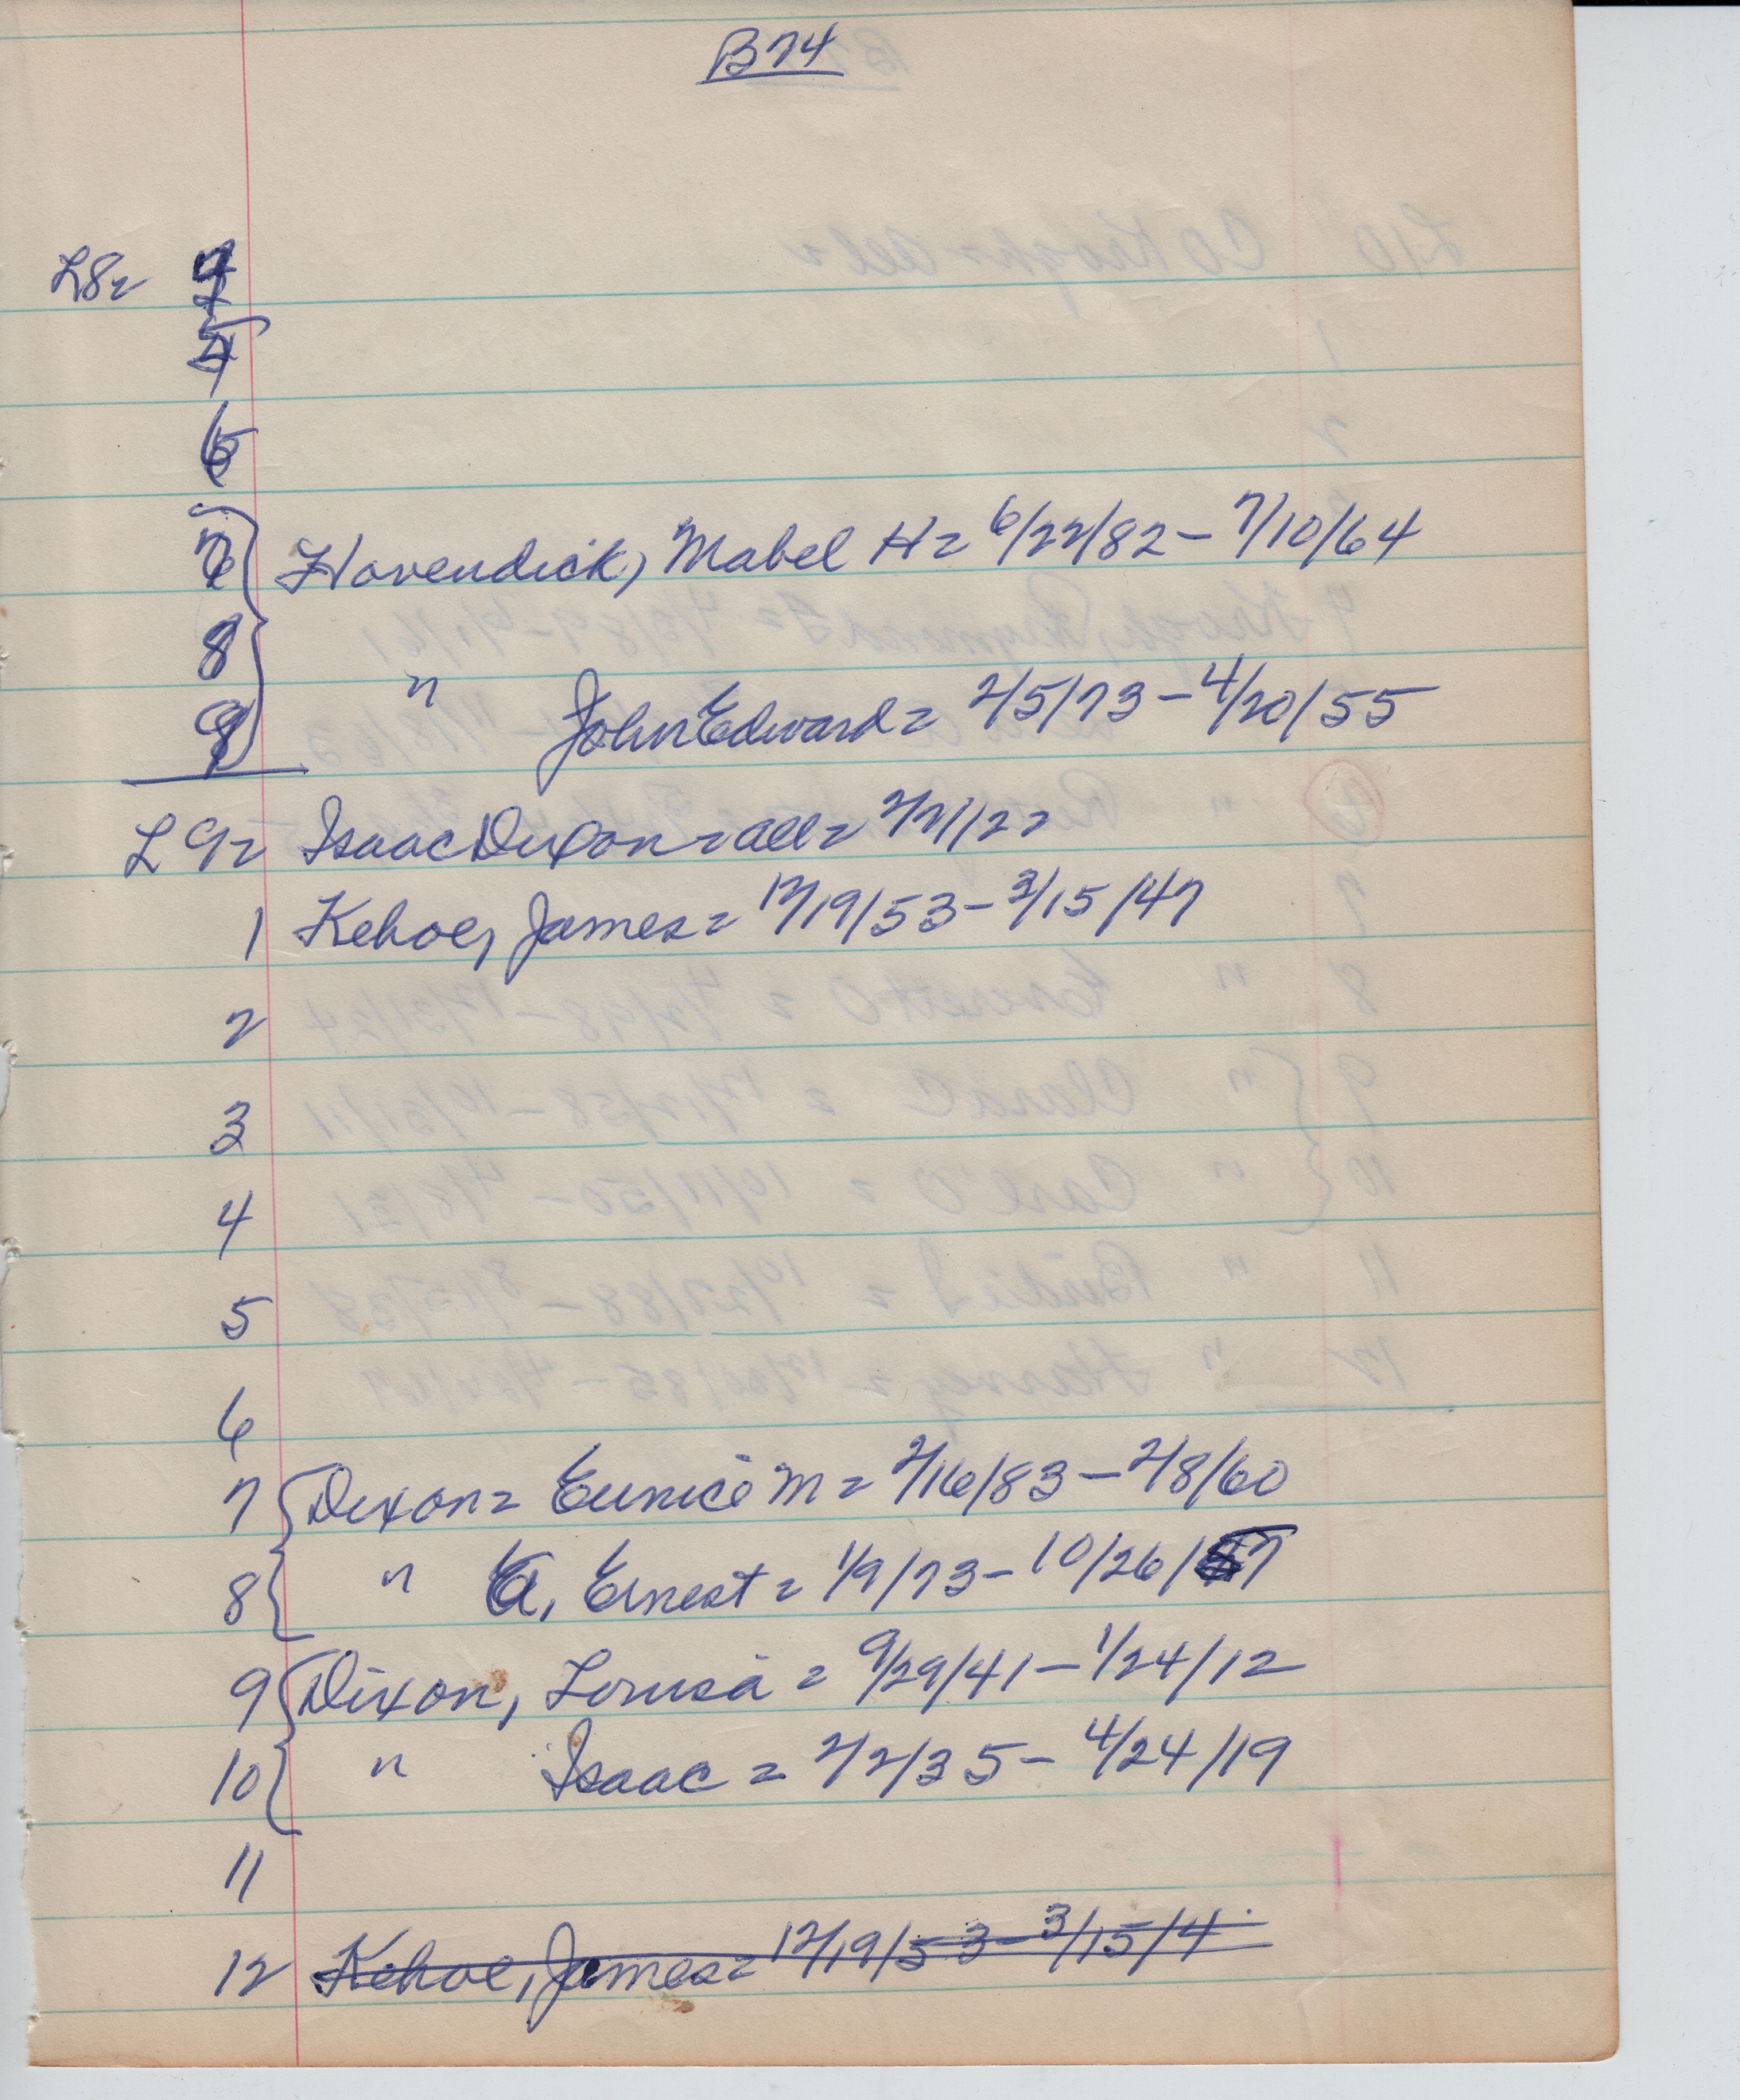 B74
L8=
6
7 Havendick, Mabel H = 6/22/82 - 7/10/64
8
9 " John Edward = 2/5/73 - 4/20/55
L9= Isaac Dixon = all = 2/21/22
1 Kehoe, James = 12/19/53 - 3/15/47
2
3
4
5
6
7 Dixon = Eunice M = 2/16/83 - 2/8/60
8 " A, Ernest = 1/9/73 - 10/26/57
9 Dixon, Lousia = 9/29/41 - 1/24/12
10 " Isaac = 2/2/35 - 4/24/19
11
12 Kehoe, James = 12/19/53 - 3/15/4